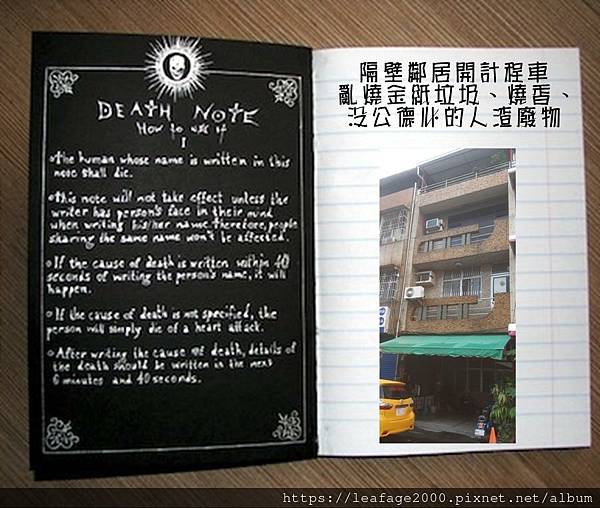 DEATH NOTE
HOW TO USE IT
I
The human whose name is written in this
note shall die.
This note will not take effect unless the
writer has person's face in their mind
when writing his/her name. therefore, people
sharing the same name won't be affected.
If the cause of death is written within 40
seconds of writing the person's name, it will
happen.
If the cause of death is not specified, the
person will simply die of a heart attack.
After writing the cause of death, details of
the death should be written in the next
6 minutes and 40 seconds.
隔壁鄰居開計程車
亂燒金紙垃圾、燒香、
沒公德心的人渣廢物
https://leafage2000.pixnet.net/album